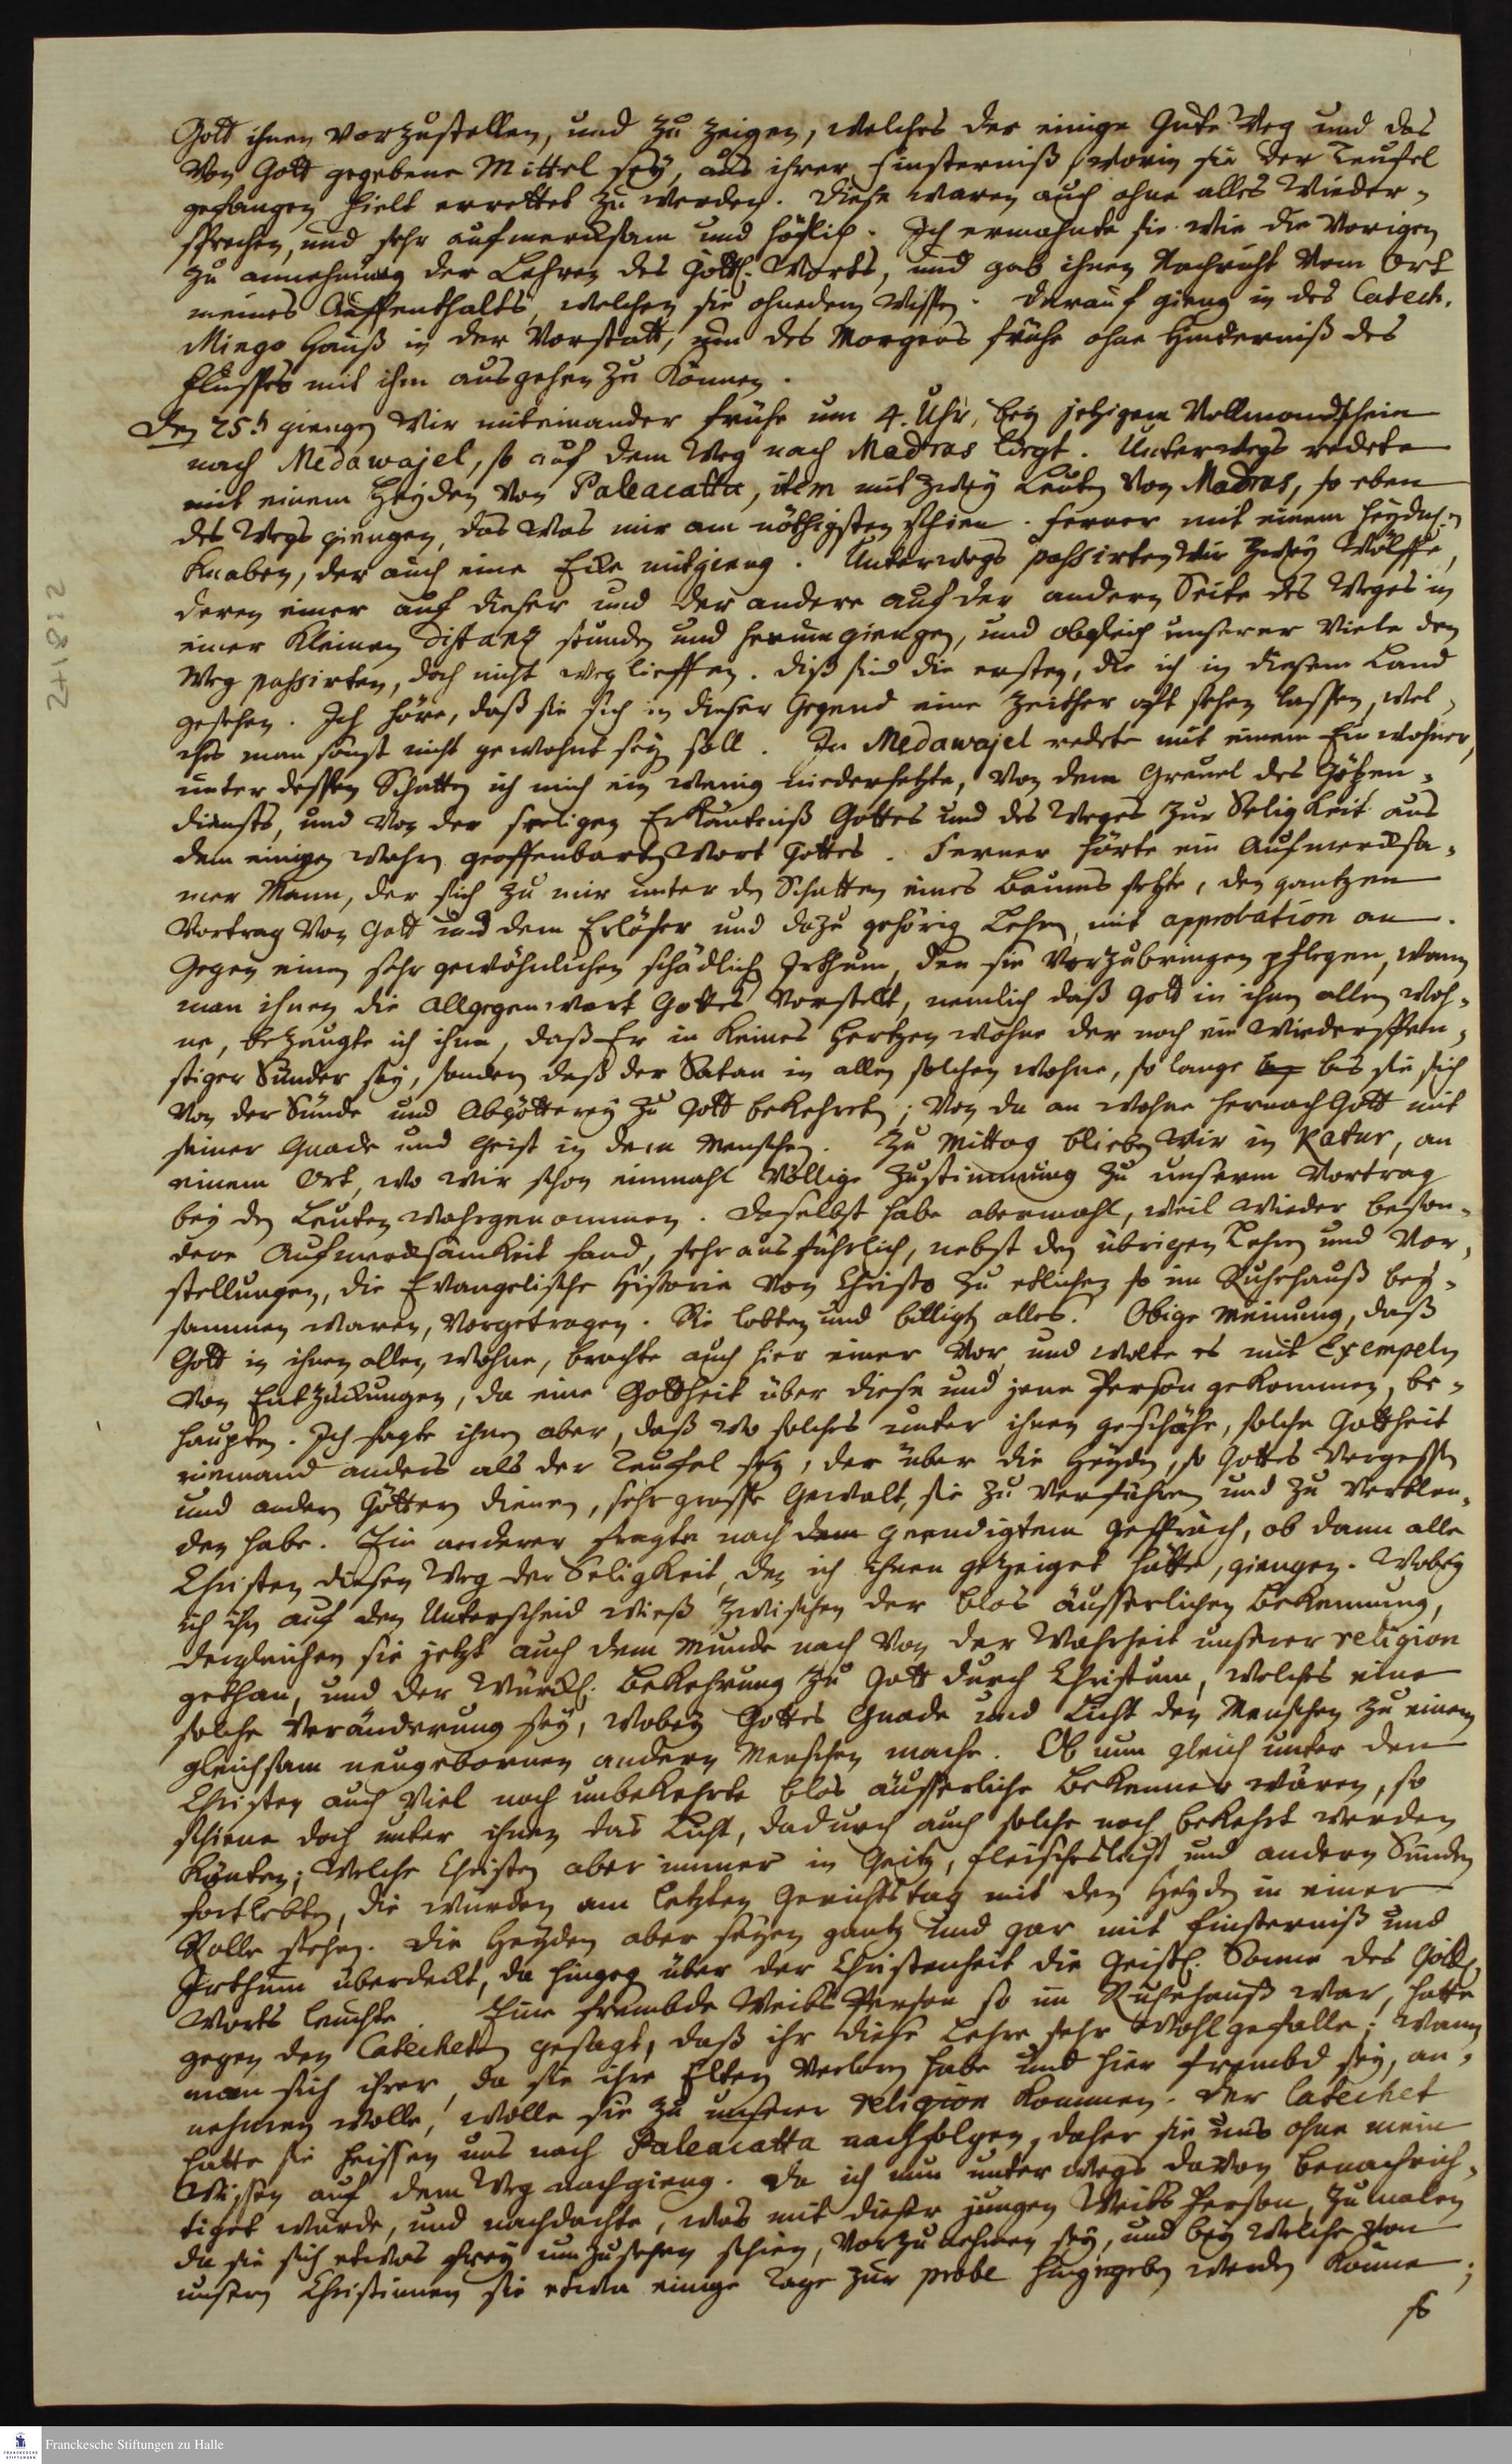 Gott ihnen vorzustellen, und zu zeigen, welches der einige gute Weg und das
von Gott gegebene Mittel sey, aus ihrer Finsterniß /worin sie der Teufel
gefangen hielt errettet zu werden. Diese waren auch ohne alles Wieder-
sprechen, und sehr aufmercksam und höflich. Ich ermahnte sie wie die Vorigen
zu annehmung der Lehren des Göttl. Worts, und gab ihnen Nachricht vom Ort
meines Auffenthalts, welchen sie ohnedem wissen. Darauf gieng in des Catech.
Mingo Hauß in der Vorstatt, um des Morgens frühe ohne Hinderniß des
Flusses mit ihm ausgehen zu können.
Den 25.t giengen wir miteinander frühe um 4. Uhr, bey jetzigem Vollmondschein
nach Medawajel, so auf dem Weg nach Madras liegt. Unterwegs redete
mit einem Heyden von Paleacatta, item mit zwey Leuten von Madras, so eben
des Wegs giengen, das was mir am nöthigsten schien. Ferner mit einem heydn.
Knaben, der auch eine Ecke mitgieng. Unterwegs passirten wir zwey Wölffe,
deren einer auf dieser und der andere auf der andern Seite des Weges in
einer kleinen Distanz stunden und herum giengen, und obgleich unserer viele den
Weg passirten, doch nicht weg lieffen. Diß sind die ersten, die ich in diesem Land
gesehen. Ich höre, daß sie sich in dieser Gegend eine zeither oft sehen lassen, wel-
ches man sonst nicht gewohnt sey soll. In Medawajel redete mit einem Einwohner,
unter dessen Schatten ich mich ein wenig niedersetzte, von dem Greuel des Götzen-
diensts, und von der seeligen Erkäntniß Gottes und des Weges zur Seligkeit aus
dem einigen wahren geoffenbarten Wort Gottes. Ferner hörte ein aufmercksa-
mer Mann, der sich zu mir unter den Schatten eines Baums setzte, den gantzen
Vortrag von Gott und dem Erlöser und dazu gehörig Lehren, mit approbation an.
Gegen einen sehr gewöhnlichen schädlich Irthum, den sie vorzubringen pflegen, wann
man ihnen die Allgegenwart Gottes vorstellt, nemlich daß Gott in ihnen allen woh-
ne, bezeugte ich ihm, daß Er in keines Hertzen wohne der noch ein wiederspen-
stiger Sünder sey, sondern daß der Satan in allen solchen wohne, so lange bis sie sich
von der Sünde und Abgötterey zu Gott bekehreten; von da an wohne hernach Gott mit
seiner Gnade und Geist in dem Menschen. Zu Mittag blieben wir in Katur, an
einem Ort, wo wir schon einmahl völlige Zustimmung zu unserm Vortrag
bey den Leuten wahrgenommen. Daselbst habe abermahl, weil wieder beson-
dere Aufmercksamkeit fand, sehr ausführlich, nebst den übrigen Lehren und Vor-
stellungen, die Evangelische Historie von Christo zu etlichen so im Ruhehauß bey-
sammen waren, vorgetragen. Sie lobten und billigten alles. Obige Meinung, daß
Gott in ihnen allen wohne, brachte auch hier einer vor, und wolte es mit Exempeln
von Entzückungen, da eine Gottheit über diese und jene Person gekommen, be-
haupten. Ich sagte ihnen aber, daß wo solches unter ihnen geschähe, solche Gottheit
niemand anders als der Teufel sey, der über die Heyden, so Gottes vergessen
und andern Göttern dienen, sehr grosse Gewalt, sie zu verführen und zu verblen-
den habe. Ein anderer fragte nach dem geendigtem Gespräch, ob dann alle
Christen diesen Weg der Seligkeit, den ich ihnen gezeiget hätte, giengen. Wobey
ich ihn auf den Unterscheid wieß zwischen der blos äusserlichen Bekennung,
dergleichen sie jetzt auch dem Munde nach von der Wahrheit unserer religion
gethan, und der würckl. Bekehrung zu Gott durch Christum, welches eine
solche Veränderung sey, wobey Gottes Gnade und Licht den Menschen zu einem
gleichsam neugebornen andern Menschen mache. Ob nun gleich unter den
Christen auch viel noch unbekehrte blos äusserliche Bekenner wären, so
schiene doch unter ihnen das Licht, dadurch auch solche noch bekehrt werden
könten; welche Christen aber immer in Geitz, Fleischeslust und andern Sünden
fortlebten, die würden am letzten Gerichtstag mit den Heyden in einer
Rolle stehen. Die Heyden aber seyen gantz und gar mit Finsterniß und
Irthum überdeckt, da hingegen über der Christenheit die Geistl. Sonne des Göttl.
Worts leuchte. Eine frembde Weibs Person so im Ruhehauß war, hatte
gegen den Catecheten gesagt, daß ihr diese Lehre sehr wohl gefalle; wann
man sich ihrer, da sie ihre Eltern verloren habe und hier frembd sey, an-
nehmen wolle, wolle sie zu unserer religion kommen. Der Catechet
hatte sie heissen uns nach Paleacatta nachfolgen, daher sie uns ohne mein
Wissen auf dem Weg nachgieng. Da ich nun unterwegs davon benachrich-
tiget wurde, und nachdachte, was mit dieser jungen Weibs Person, zumalen
da sie sich etwas frey umzusehen schien, vorzunehmen sey, und bey welche von
unsern Christinnen sie etwa einige Tage zur probe hingegeben werden könne;
so
Franckesche Stiftungen zu Halle